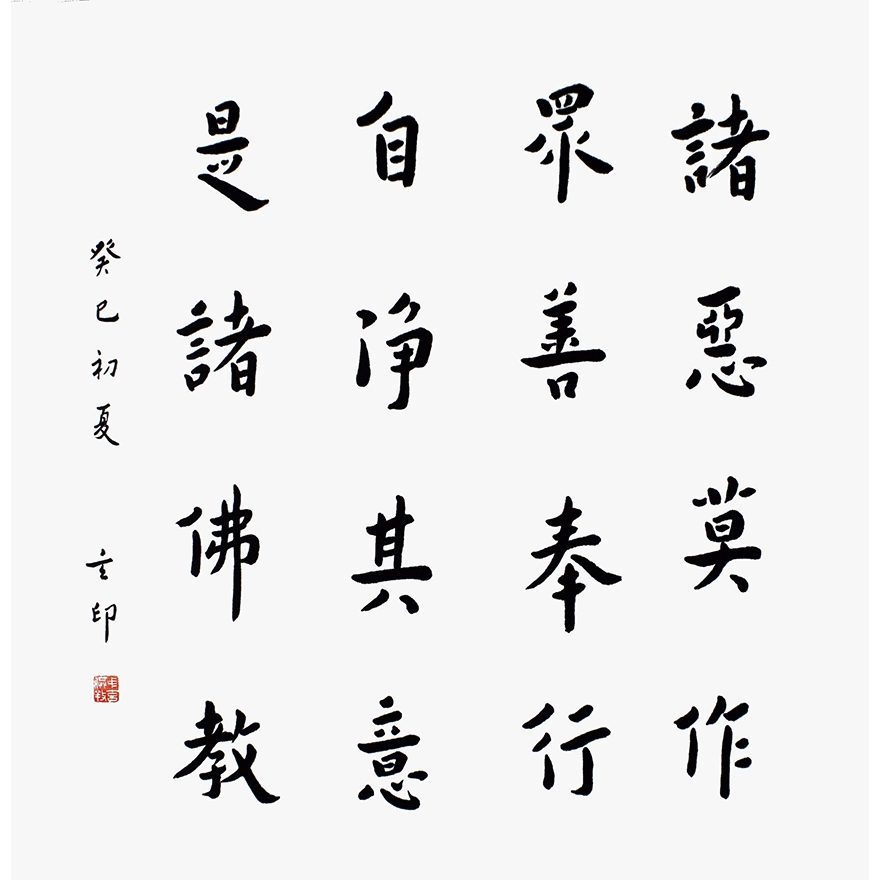 諸惡莫作
眾善奉行
自淨其意
是諸佛教
癸巳初夏 玄印